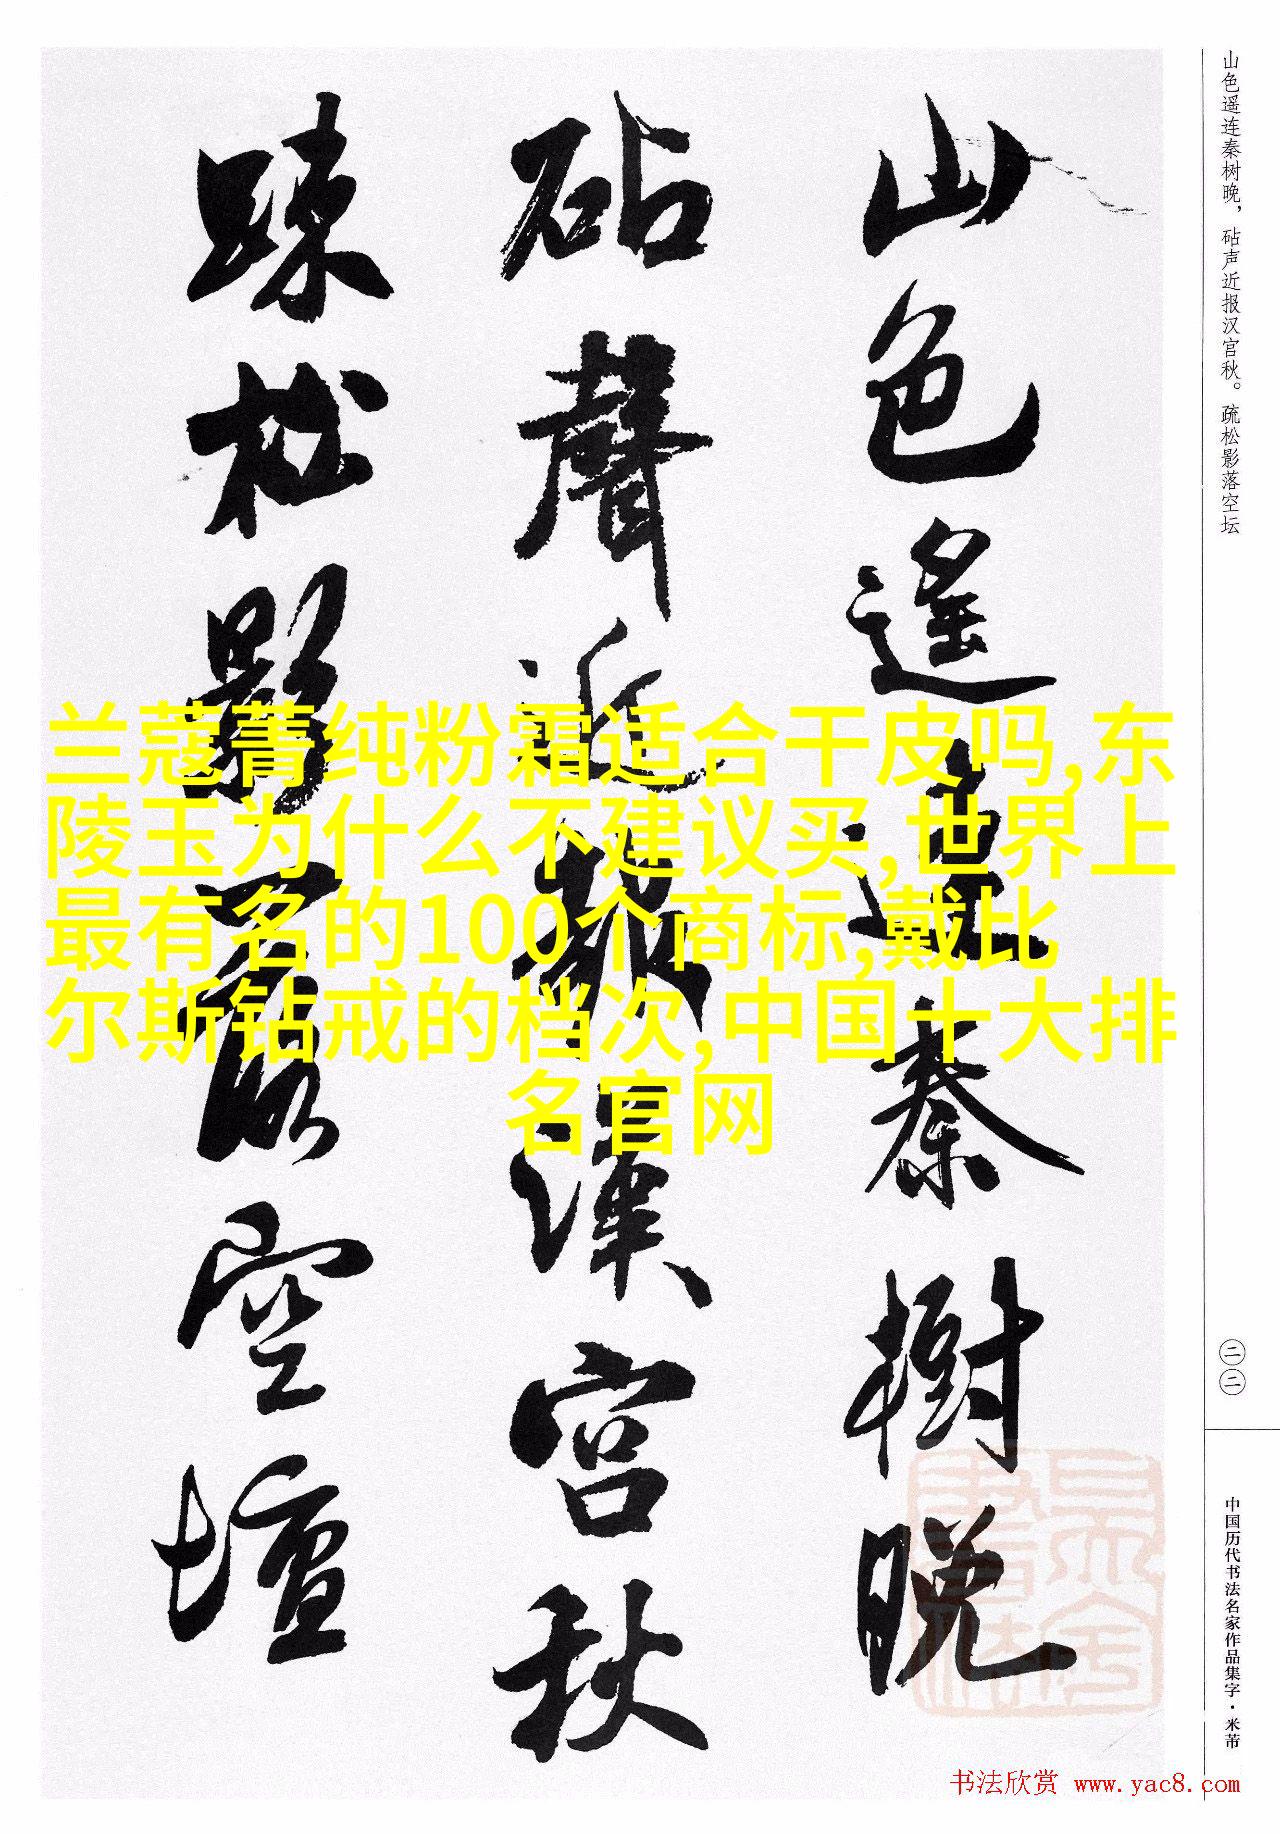 山色遥连秦树晚，砧声近报汉宫秋。疏松影落空坛
二二
中国历代书法名家作品集字·米芾
山色遥連秦樹晚
砧聲近報漢宮秋
踈松影落空壇
兰蔻菁纯粉霜适合干皮吗,东
陵玉为什么不建议买,世界上
最有名的100个商标,戴比
尔斯钻戒的档次,中国十大排
名官网
书法欣赏 www.yac8.com